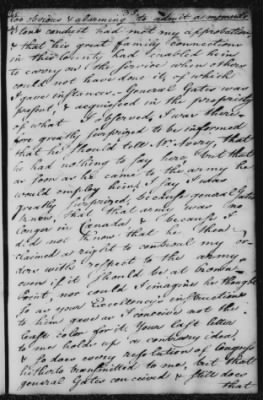 too obvious & alarming to admit
conduct had not my approbation,
& that his great family Connections
in this County had enabled him
to carry on the Service when others
could not have done it, of which
I gave instances. General Gates was
present, & acquiesced in the propriety
of what I observed, I was there-
fore greatly surprized to be informed
that he should tell Mr. Avery, that
he had nothing to say here, but that
as soon as he came to the army he
would employ him; I say I was
greatly surprized, because General Gates
knew, that that army was no
longer in Canada & because I
did not know that he then
claimed a right to controul my or-
ders with respect to the army,
even if it should be at Crown-
Point, nor could I imagine he thought
so as your Excellency's instructions
to him gave as I conceive not the
least color for it: Your last letter
to me holds up a contrary idea,
& so does every resolution of Congress
transmitted to me, but that
general Gates conceived & still does
that